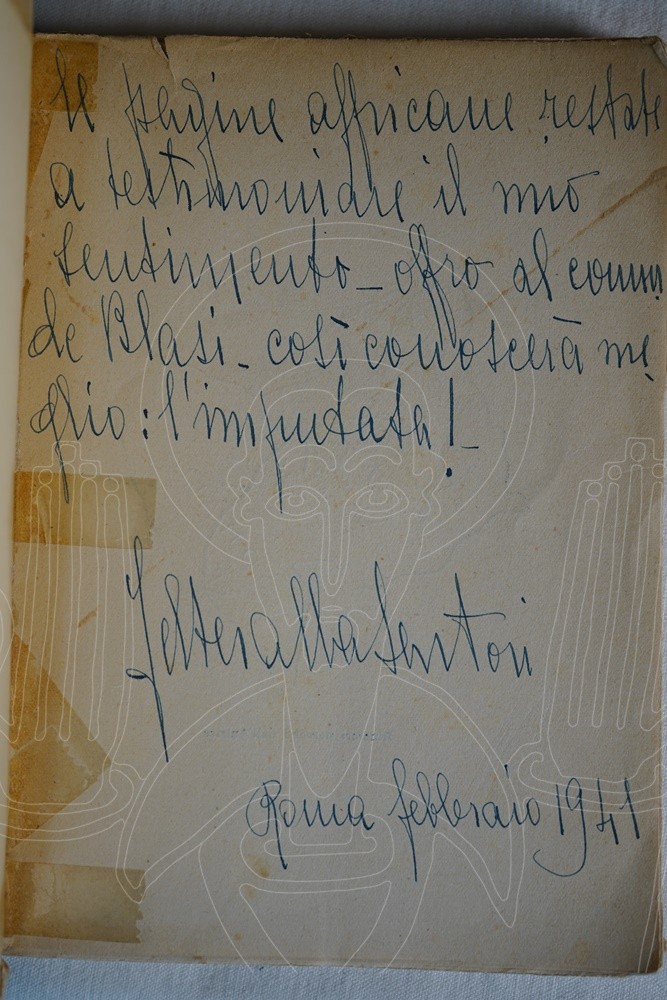 le pagine affricane restate
a testimoniare il mio
sentimento_offro al comm
de Blasi_così conoscerà me
glio: l'imputata!_
Roma febbraio 1941